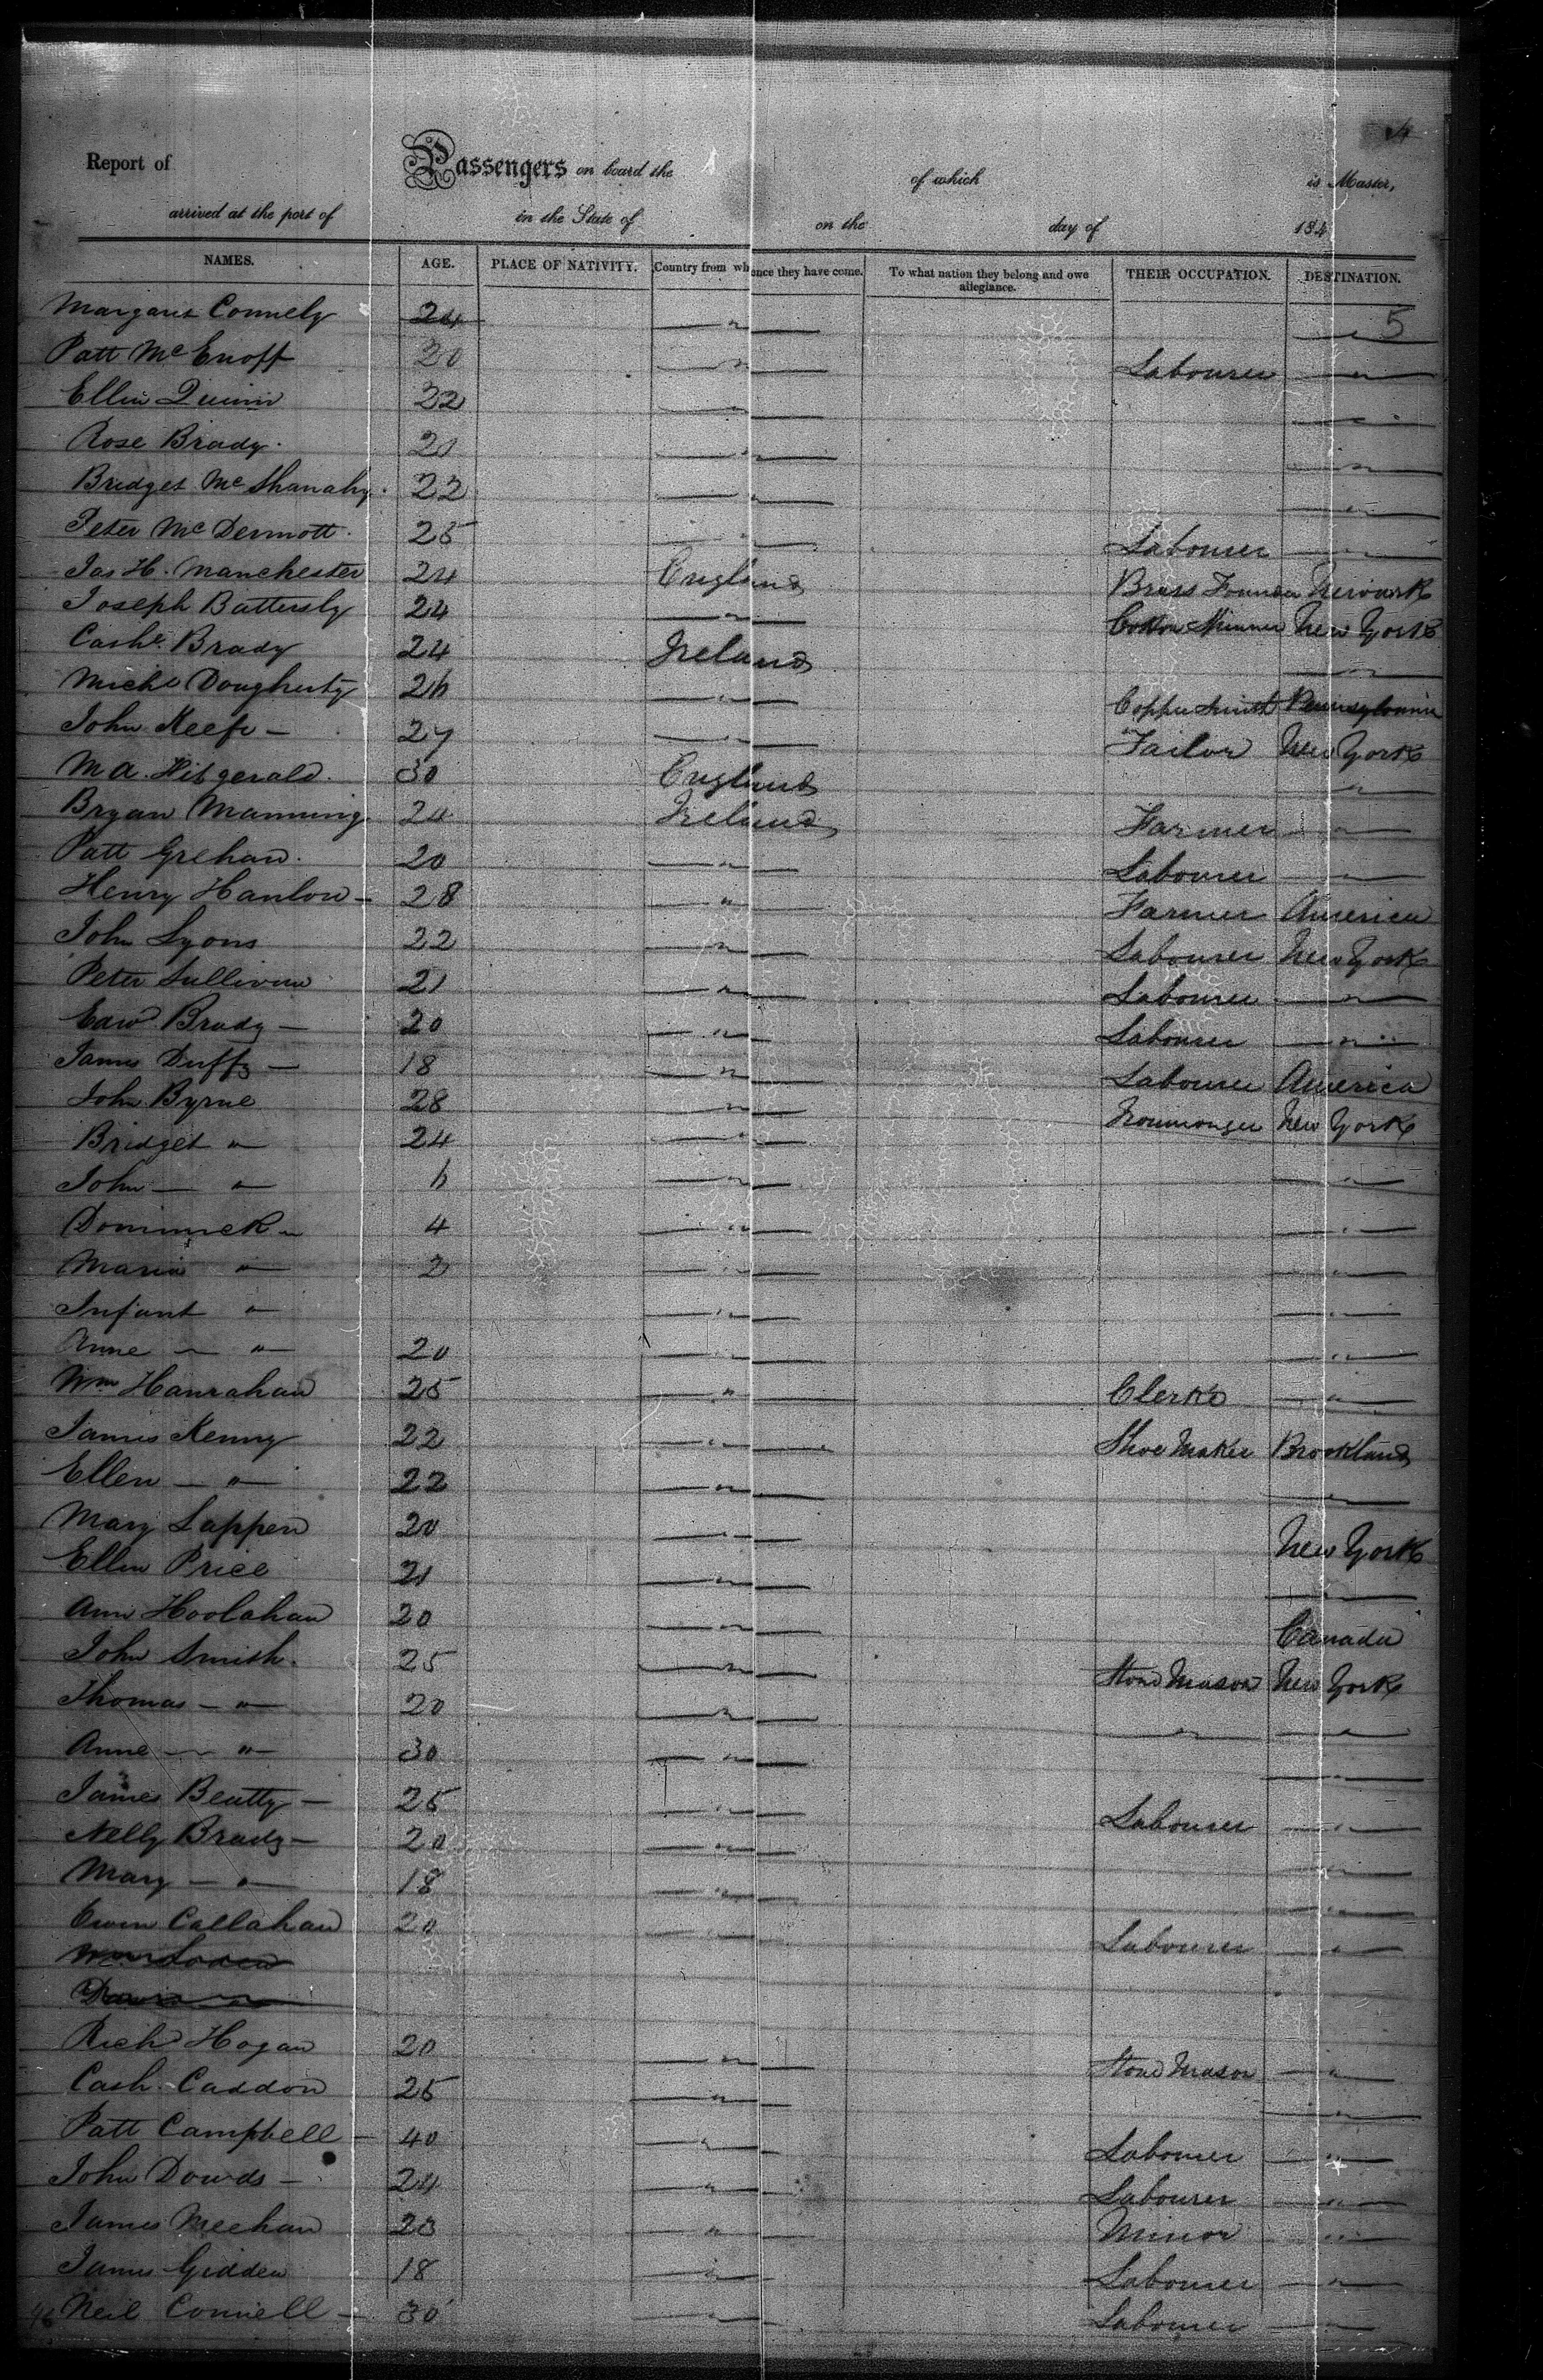 Report of Passengers on board the of which is Master,
arrived at the port of in the State of on the day of 184
NAMES. AGE. PLACE OF NATIVITY. Country from whence they have come. To what nation they belong and owe allegiance. THEIR OCCUPATION. DESTINATION.
5
Margaret Connely 24 — " — — " —
Patt McEnoff 20 — " — Labourer — " —
Ellin Quinn 22 — " — — " —
Rose Brady. 21 — " — — " —
Bridget McShanahy. 22 — " — — " —
Peter McDermott. 25 — " — Labourer — " —
Jas H. Manchester 24 England Brass Founder Newark
Joseph Battersby 24 — " — Cotton Spinner New York
Cashe. Brady 24 Ireland — " —
Michl Dougherty 26 — " — Copper Smith Pennsylvania
John Keefe — 27 — " — Tailor New York
M A. Fitzgerald. 30 England — " —
Bryan Manning 24 Ireland Farmer — " —
Patt Grehan. 20 — " — Labourer — " —
Henry Hanlon — 28 — " — Farmer America
John Lyons 22 — " — Labourer New York
Peter Sullivan 21 — " — Labourer — " —
Edwd Brady — 20 — " — Labourer — " —
James Duffy — 18 — " — Labourer America
John Byrne 28 — " — Ironmonger New York
Bridget " 24 — " —
John — " 6 — " — — " —
Dominick " 4 — " — — " —
Maria " 2 — " — — " —
Infant " — " — — " —
Anne — " 20 — " — — " —
Wm Hanrahan 25 — " — Clerk — " —
James Kenny 22 — " — Shoe Maker Brookland
Ellen — " — 22 — " — — " —
Mary Lappen 20 — " — New York
Ellen Price 21 — " — — " —
Ann Hoolahan 20 — " — Canada
John Smith. 25 — " — Stone Mason New York
Thomas — " — 20 — " — — " — — " —
Anne — " — 30 — " — — " —
James Beatty — 25 — " — Labourer — " —
Nelly Brady — 20 — " — — " —
Mary — " — 18 — " — — " —
Owen Callahan 20 — " — Labourer — " —
Richd Hogan 20 — " — Stone Mason — " —
Cash. Caddon 25 — " — — " —
Patt Campbell — 40 — " — Labourer — " —
John Dowds — 24 — " — Labourer — " —
James Meehan 23 — " — Minor — " —
James Gidden 18 — " — Labourer — " —
46 Neil Connell — 30 — " — Labourer — " —